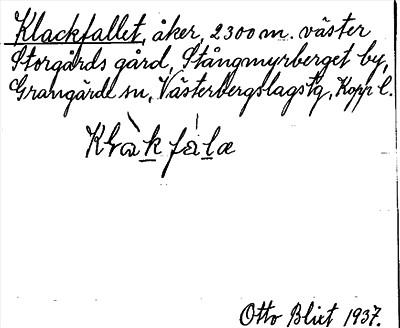 Klackfallet, åker, 2300 m. väster
Storgårds gård, Stångmyrberget by,
Grangärde sn, Västerbergslags tg, Kopp l.
Klàk fála
Otto Blixt 1937.